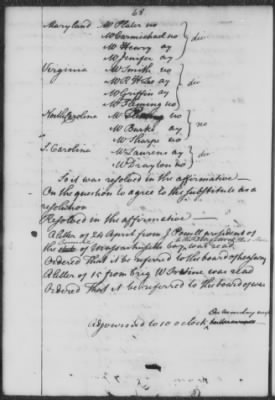 68
Maryland Mr Plater no
Mr Carmichael no } div
Mr Henry ay
Mr Jenifer ay
Virginia Mr Smith no
Mr R H Lee ay } div
Mr Griffin ay
Mr Fleming no
North Carolina Mr no
Mr Burke ay } no
Mr Sharpe no
S. Carolina Mr Laurens ay } div
Mr Drayton no
So it was resolved in the affirmative —
On the question to agree to the substitute as a
resolution
Resolved in the affirmative —
A letter of 24 April from J Powell president of
the of Massachusetts bay was read
Ordered That it be referred to the board of treasury
A letter of 15 from Brig W Irvine was read
Ordered That it be referred to the board of war
Adjourned to 10 o Clock on